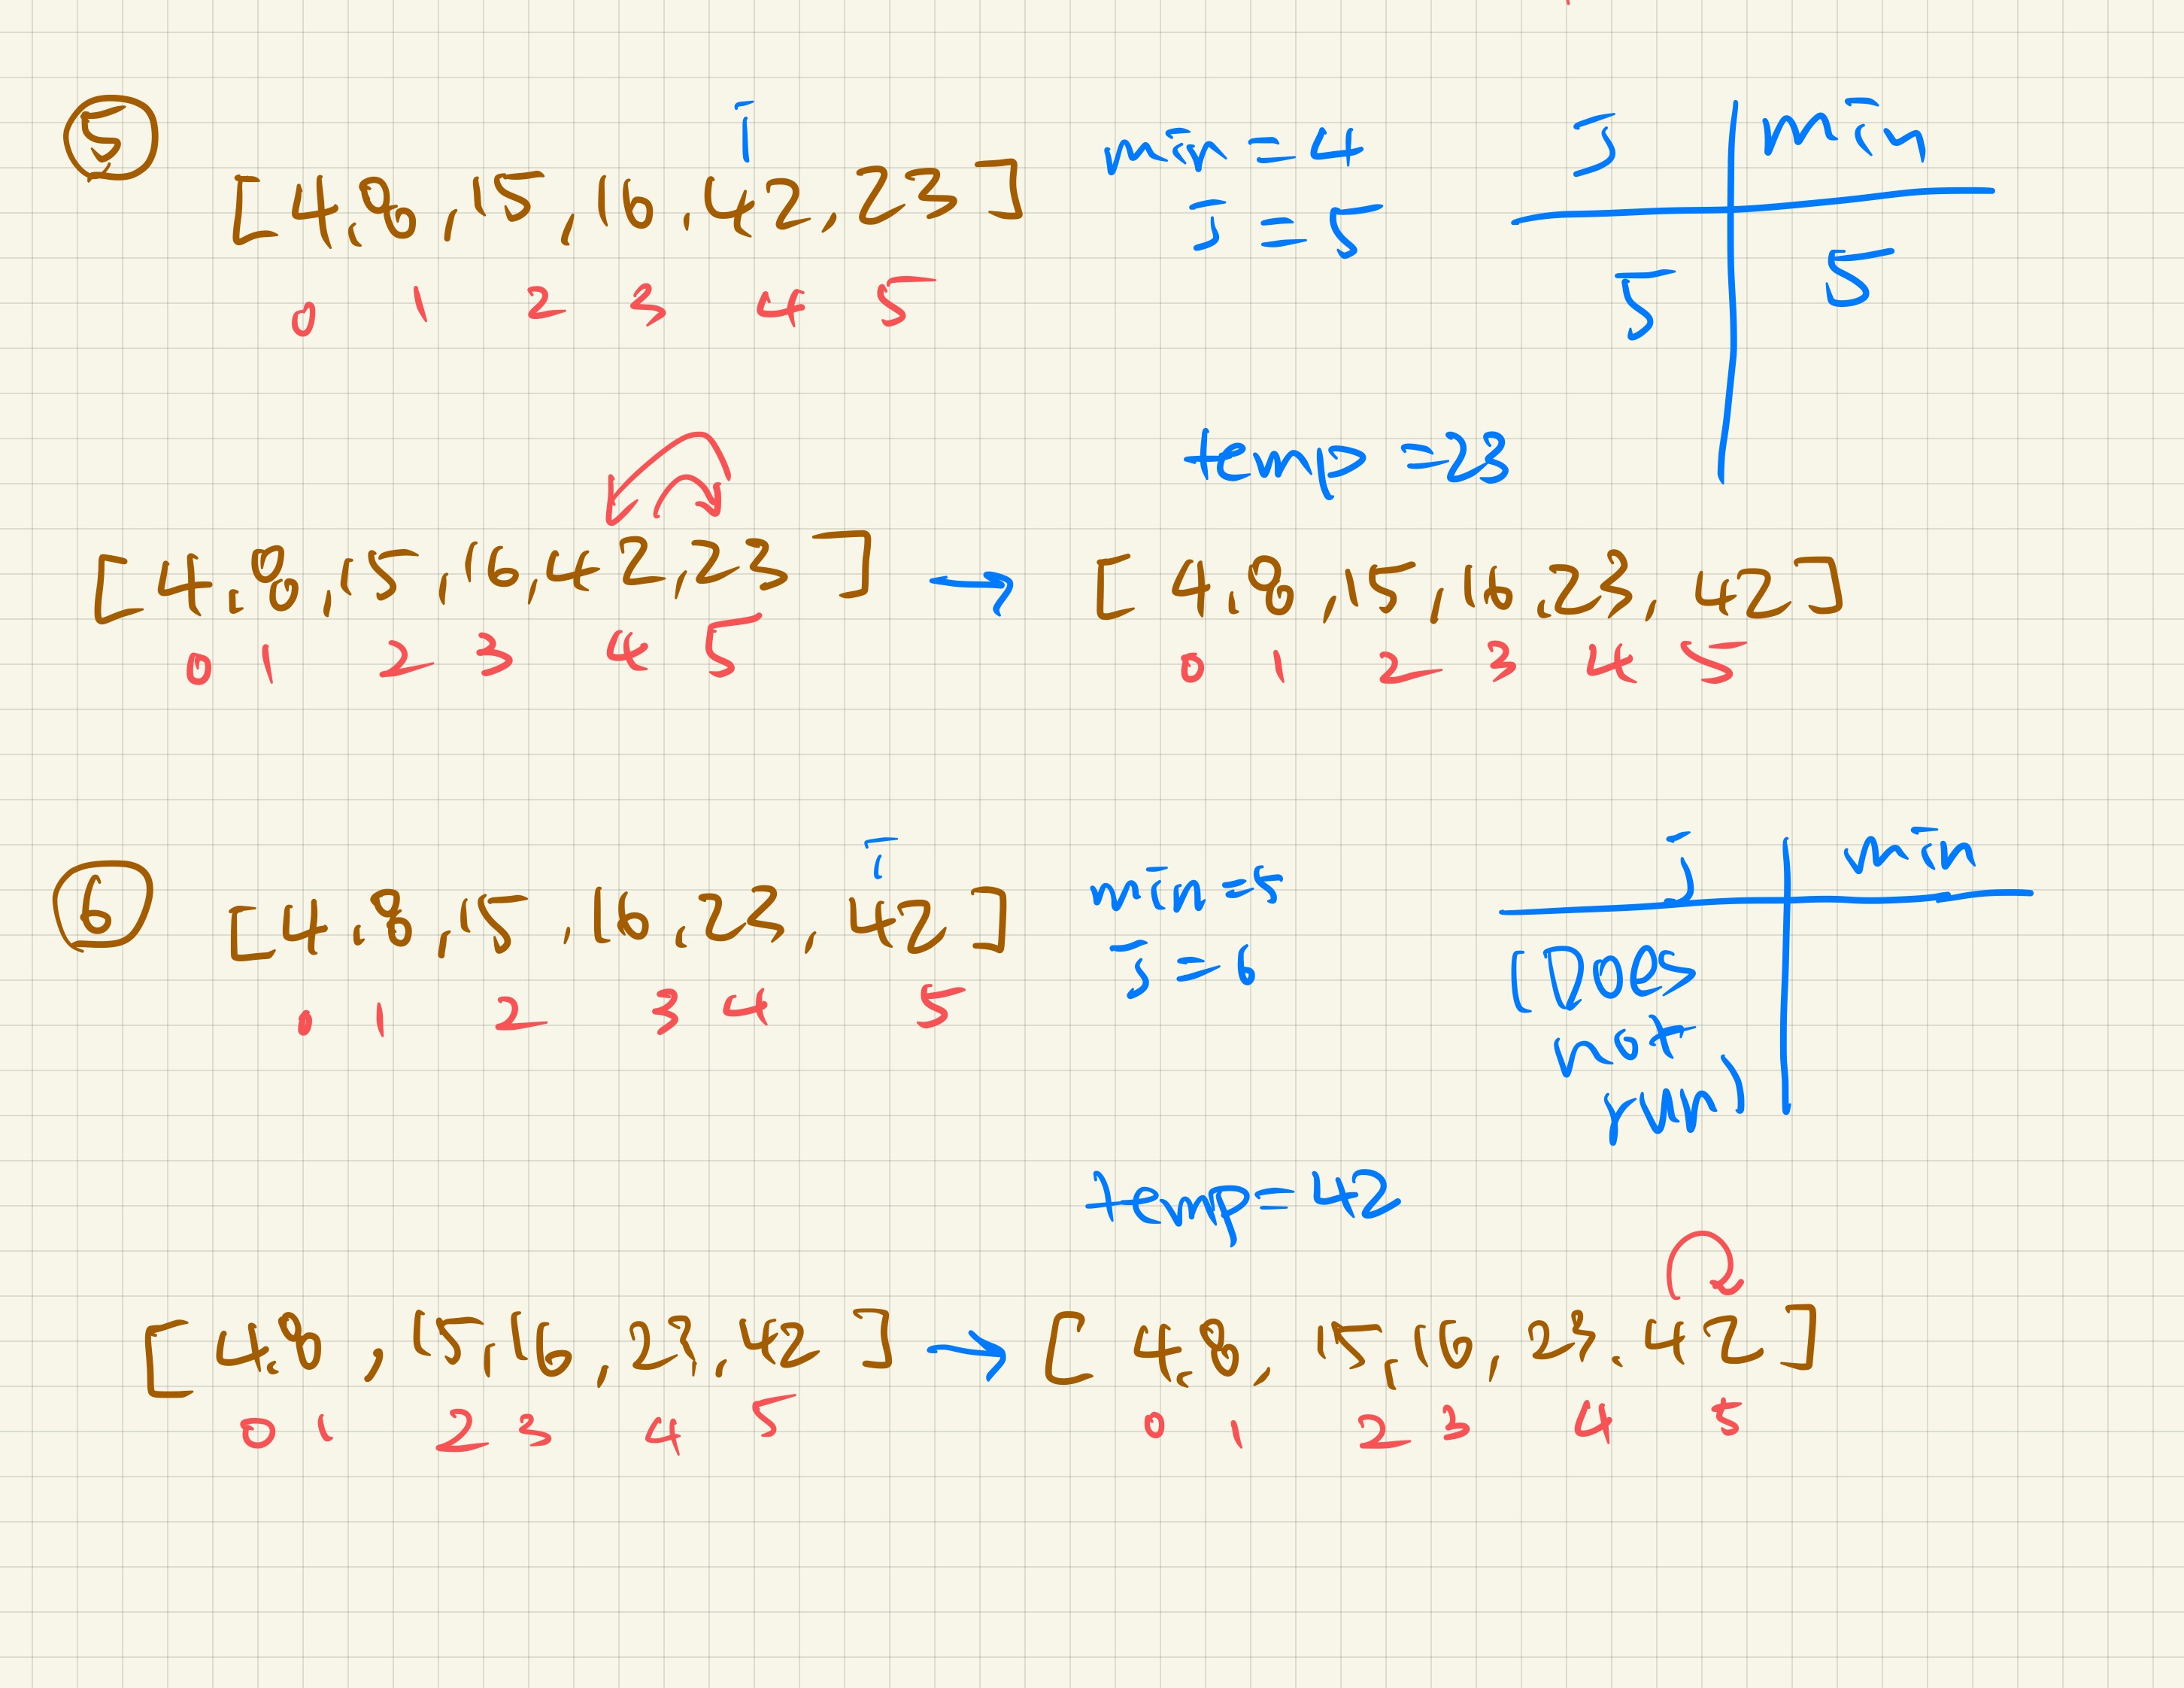 ⑤
i
[4,8,15,16,42,23]
0 1 2 3 4 5
min = 4
j = 5
j | min
5 | 5
temp = 23
[4,8,15,16,42,23] → [4,8,15,16,23,42]
0 1 2 3 4 5 0 1 2 3 4 5
⑥
i
[4,8,15,16,23,42]
0 1 2 3 4 5
min = 5
j = 6
j | min
(Does
not
run)
temp = 42
[4,8,15,16,23,42] → [4,8,15,16,23,42]
0 1 2 3 4 5 0 1 2 3 4 5